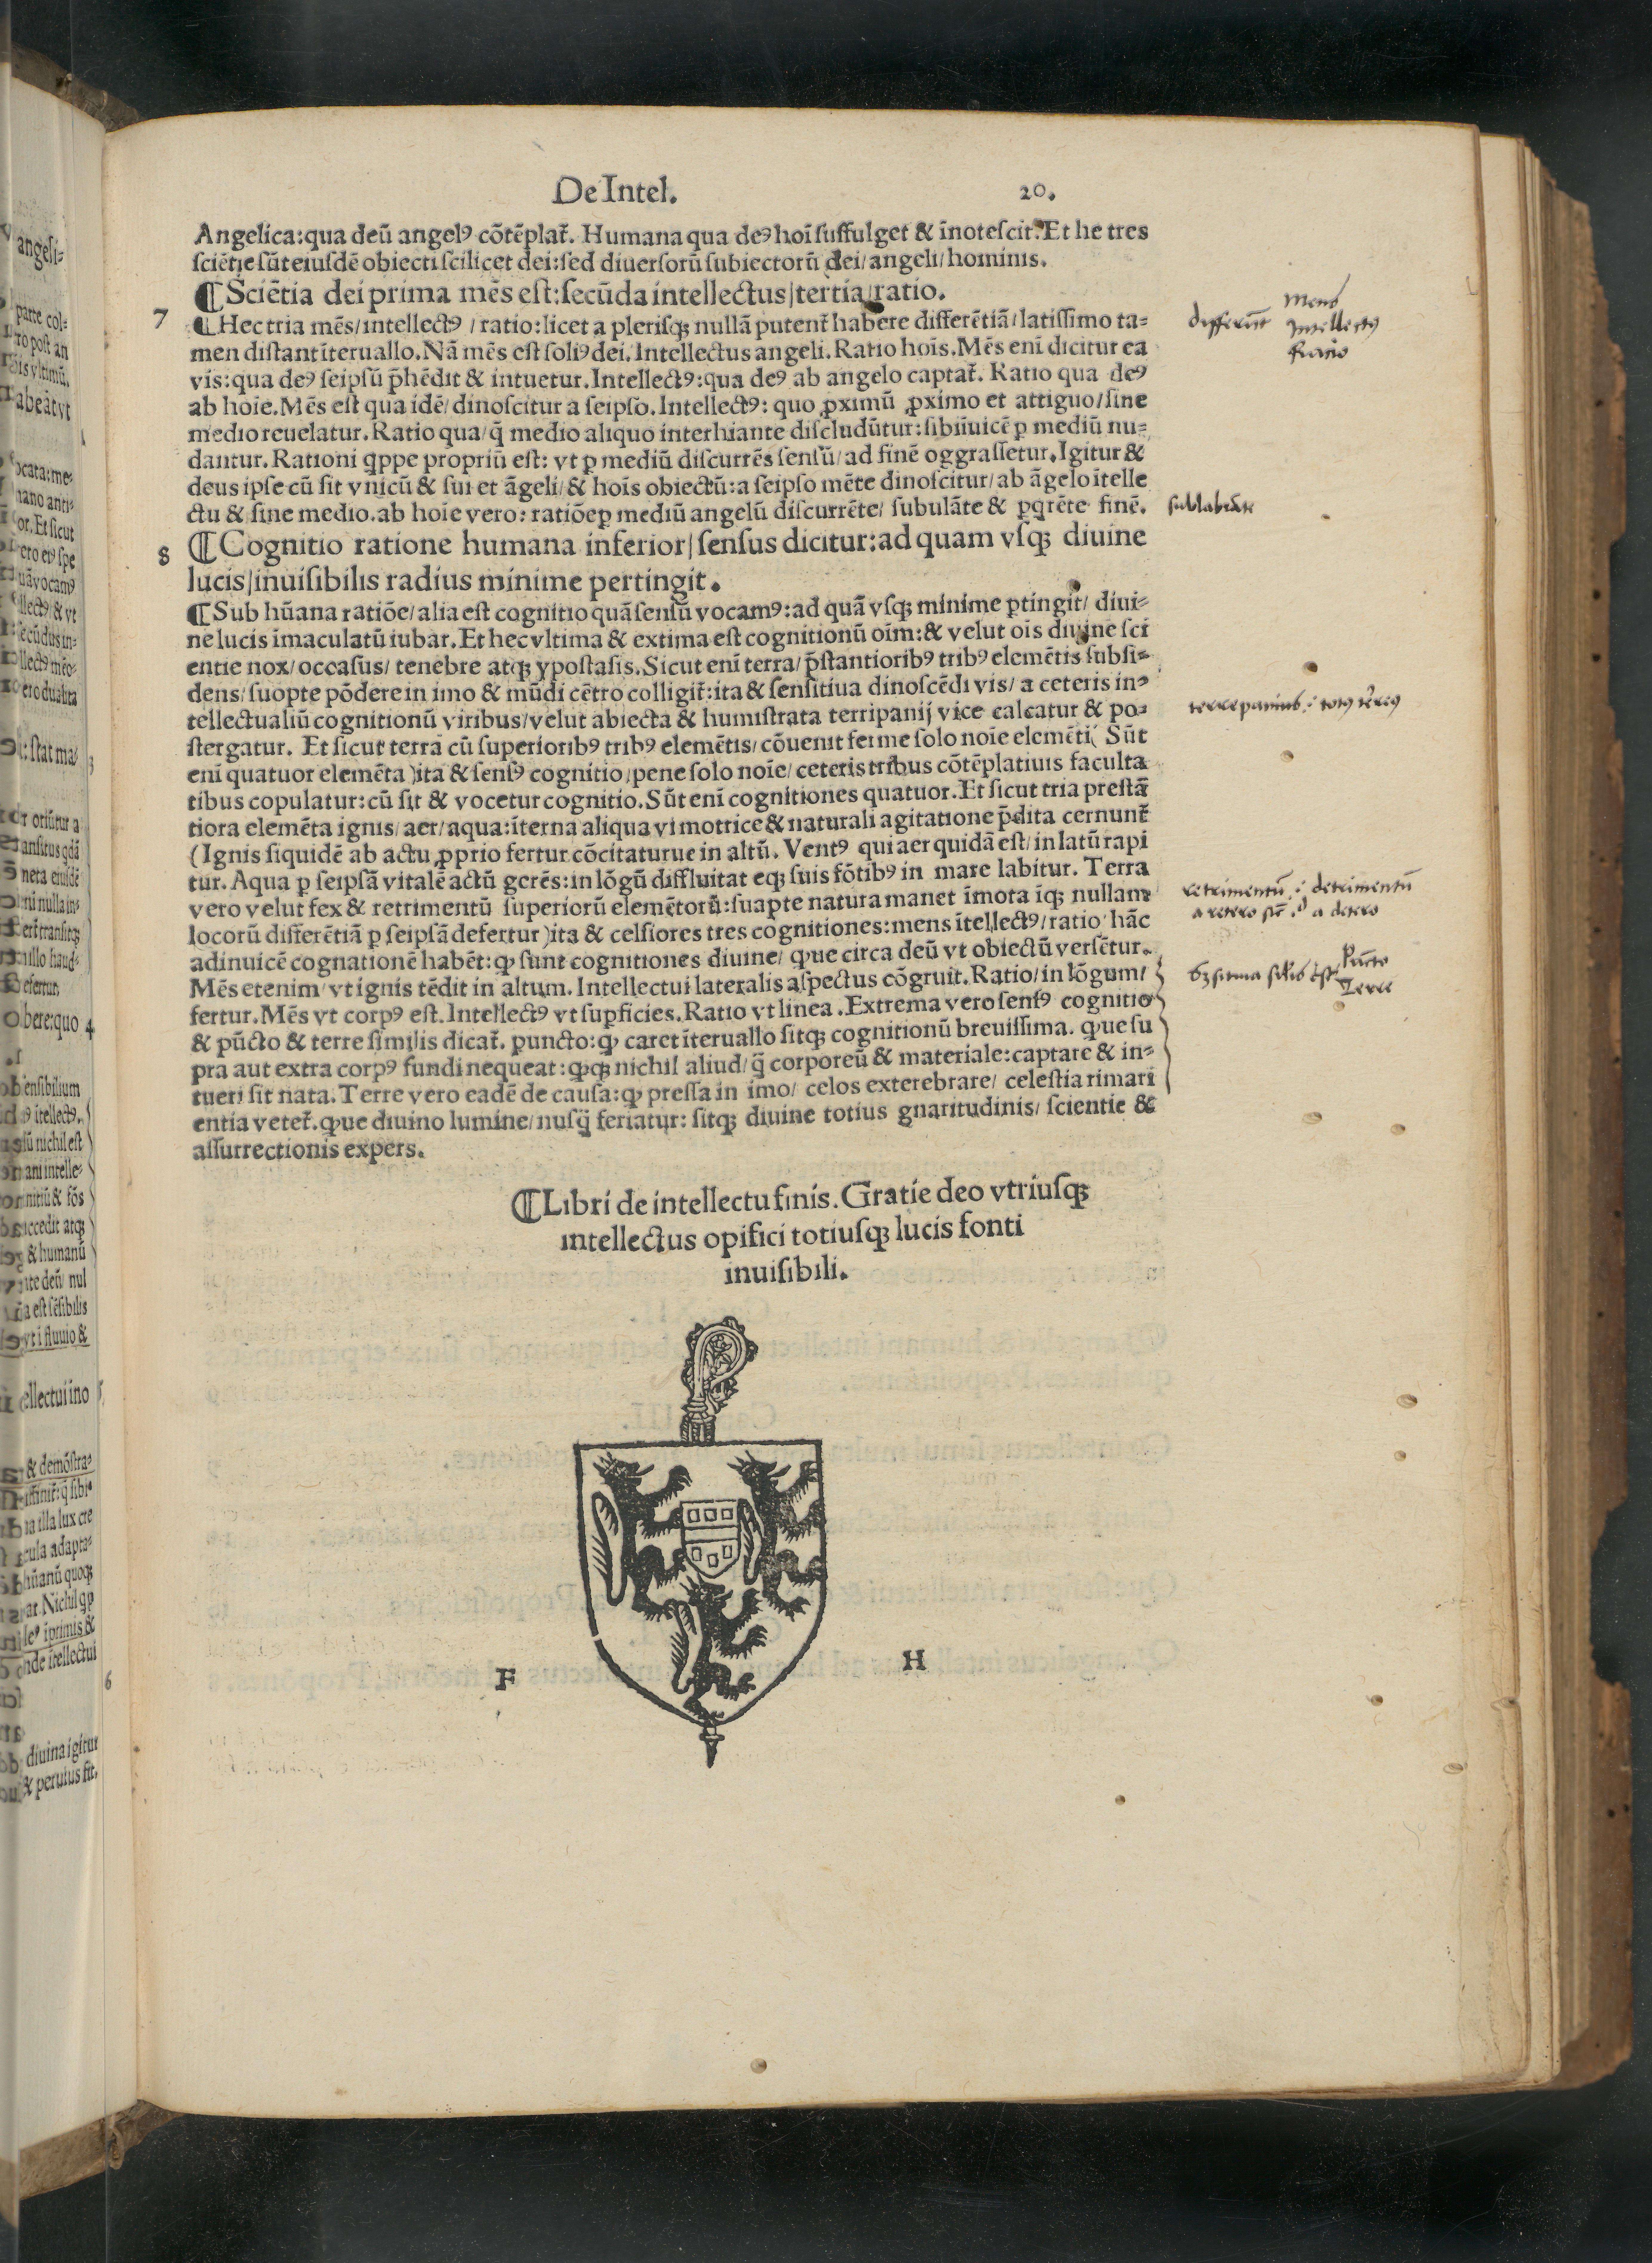 De Intel. 20.
Angelica:qua deū angelꝰ cōtēplat̄. Humana qua deꝰ hoī suffulget & īnotescit. Et he tres
sciētie sūt eiusdē obiecti scilicet dei:sed diuersorū subiectorū dei/angeli/hominis.
7 ¶Sciētia dei prima mēs est:secūda intellectus/tertia/ratio.
¶Hec tria mēs/intellectꝰ/ratio:licet a plerisqꝫ nullā putent̄ habere differētiā/latissimo ta-
men distant īteruallo. Nā mēs est soliꝰ dei. Intellectus angeli. Ratio hoīs. Mēs enī dicitur ea
vis:qua deꝰ seipsū p̄hēdit & intuetur. Intellectꝰ:qua deꝰ ab angelo captat̄. Ratio qua deꝰ
ab hoīe. Mēs est qua idē/dinoscitur a seipso. Intellectꝰ: quo ꝓximū ꝓximo et attiguo/sine
medio reuelatur. Ratio qua/q̄ medio aliquo interhiante discludūtur:sibiīuicē ꝑ mediū nu-
dantur. Rationi qppe propriū est: vt ꝑ mediū discurrēs sensū/ad finē oggrassetur. Igitur &
deus ipse cū sit vnicū & sui et āgeli/& hoīs obiectū:a seipso mēte dinoscitur/ab āgelo ītelle
ctu & sine medio. ab hoīe vero: ratiōe ꝑ mediū angelū discurrēte/ subulāte & ꝑqrēte finē.
8 ¶Cognitio ratione humana inferior/sensus dicitur:ad quam vsqꝫ diuine
lucis/inuisibilis radius minime pertingit.
¶Sub hūana ratiōe/alia est cognitio quā sensū vocamꝰ:ad quā vsqꝫ minime ꝑtingit/ diui-
ne lucis imaculatū iubar. Et hec vltima & extima est cognitionū oīm:& velut oīs diuine sci
entie nox/occasus/tenebre atqꝫ ypostasis. Sicut enī terra/p̄stantioribꝰ tribꝰ elemētis subsi-
dens/suopte pōdere in imo & mūdi cētro colligit̄:ita & sensitiua dinoscēdi vis/a ceteris in-
tellectualiū cognitionū viribus/velut abiecta & humistrata terripanij vice calcatur & po-
stergatur. Et sicut terra cū superioribꝰ tribꝰ elemētis/cōuenit ferme solo noīe elemēti( Sūt
enī quatuor elemēta )ita & sensꝰ cognitio/pene solo noīe/ceteris tribus cōtēplatiuis faculta
tibus copulatur:cū sit & vocetur cognitio. Sūt enī cognitiones quatuor. Et sicut tria prestā
tiora elemēta ignis/aer/aqua:īterna aliqua vi motrice & naturali agitatione p̄dita cernunt̄
(Ignis siquidē ab actu ꝓprio fertur cōcitaturue in altū. Ventꝰ qui aer quidā est/in latū rapi
tur. Aqua ꝑ seipsā vitalē actū gerēs:in lōgū diffluitat eqꝫ suis fōtibꝰ in mare labitur. Terra
vero velut fex & retrimentū superiorū elemētorū:suapte natura manet īmota īqꝫ nullam
locorū differētiā ꝑ seipsā defertur )ita & celsiores tres cognitiones:mens ītellectꝰ/ratio hāc
adinuicē cognationē habēt:ꝙ sunt cognitiones diuine/ q̨ue circa deū vt obiectū versētur.
Mēs etenim/vt ignis tēdit in altum. Intellectui lateralis aspectus cōgruit. Ratio/in lōgum/
fertur. Mēs vt corpꝰ est. Intellectꝰ vt suꝑficies. Ratio vt linea. Extrema vero sensꝰ cognitio
& pūcto & terre similis dicat̄. puncto:ꝙ caret īteruallo sitqꝫ cognitionū breuissima. q̨ue su
pra aut extra corpꝰ fundi nequeat:ꝙqꝫ nichil aliud/q̄ corporeū & materiale:captare & in-
tueri sit nata. Terre vero eadē de causa:ꝙ pressa in imo/ celos exterebrare/ celestia rimari
entia vetet̄. q̨ue diuino lumine/nusq̄ feriatur: sitqꝫ diuine totius gnaritudinis/ scientie &
assurrectionis expers.
¶Libri de intellectu finis. Gratie deo vtriusqꝫ
intellectus opifici totiusqꝫ lucis fonti
inuisibili.
F H
differūt Mens
Intellectꝰ
Ratio
sublabāte
terrepanius .i. totꝰ terreꝰ
retrimentū .i. detrimentū
Pūcto
Terre